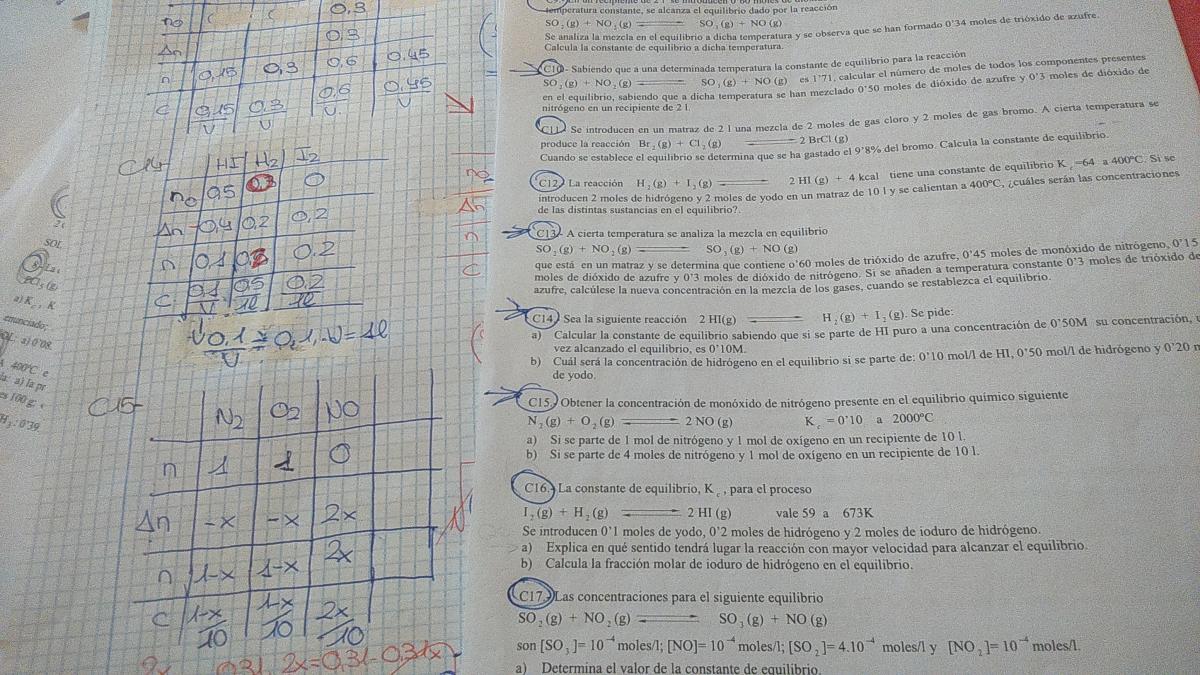 0,3
no
Δn 0,3
n 0,15 0,3 0,6 0.45
c 0,15/V 0,3/V 0,6/V 0.45/V
C14-
HI H2 I2
no 0,5 0,3 0
Δn -0,4 0,2 0,2
n 0,1 0.2
c 0,1/V 0,5/1l 0,2/1l
0,1/V = 0,1, V=1l
C15-
N2 O2 NO
n 1 1 0
Δn -x -x 2x
n 1-x 1-x 2x
c 1-x/10 1-x/10 2x/10
2x=0,31-0,31x
no
Δn
n
c
SOL
PCl5 (g)
a) Kc, K
enunciado;
400ºC e
a) la pr
es 100 g:
H3: 0'39
temperatura constante, se alcanza el equilibrio dado por la reacción
SO2 (g) + NO2 (g) SO3 (g) + NO (g)
Se analiza la mezcla en el equilibrio a dicha temperatura y se observa que se han formado 0'34 moles de trióxido de azufre.
Calcula la constante de equilibrio a dicha temperatura.
C10.- Sabiendo que a una determinada temperatura la constante de equilibrio para la reacción
SO2 (g) + NO2 (g) SO3 (g) + NO (g) es 1'71, calcular el número de moles de todos los componentes presentes
en el equilibrio, sabiendo que a dicha temperatura se han mezclado 0'50 moles de dióxido de azufre y 0'3 moles de dióxido de
nitrógeno en un recipiente de 2 l.
C11. Se introducen en un matraz de 2 l una mezcla de 2 moles de gas cloro y 2 moles de gas bromo. A cierta temperatura se
produce la reacción Br2 (g) + Cl2 (g) 2 BrCl (g)
Cuando se establece el equilibrio se determina que se ha gastado el 9'8% del bromo. Calcula la constante de equilibrio.
C12. La reacción H2 (g) + I2 (g) 2 HI (g) + 4 kcal tiene una constante de equilibrio Kc=64 a 400ºC. Si se
introducen 2 moles de hidrógeno y 2 moles de yodo en un matraz de 10 l y se calientan a 400ºC, ¿cuáles serán las concentraciones
de las distintas sustancias en el equilibrio?.
C13.- A cierta temperatura se analiza la mezcla en equilibrio
SO2 (g) + NO2 (g) SO3 (g) + NO (g)
que está en un matraz y se determina que contiene o'60 moles de trióxido de azufre, 0'45 moles de monóxido de nitrógeno, 0'15
moles de dióxido de azufre y 0'3 moles de dióxido de nitrógeno. Si se añaden a temperatura constante 0'3 moles de trióxido de
azufre, calcúlese la nueva concentración en la mezcla de los gases, cuando se restablezca el equilibrio.
C14. Sea la siguiente reacción 2 HI(g) H2 (g) + I2 (g). Se pide:
a) Calcular la constante de equilibrio sabiendo que si se parte de HI puro a una concentración de 0'50M su concentración, u
vez alcanzado el equilibrio, es 0'10M.
b) Cuál será la concentración de hidrógeno en el equilibrio si se parte de: 0'10 mol/l de HI, 0'50 mol/l de hidrógeno y 0'20 m
de yodo.
C15. Obtener la concentración de monóxido de nitrógeno presente en el equilibrio químico siguiente
N2 (g) + O2 (g) 2 NO (g) Kc = 0'10 a 2000ºC
a) Si se parte de 1 mol de nitrógeno y 1 mol de oxígeno en un recipiente de 10 l.
b) Si se parte de 4 moles de nitrógeno y 1 mol de oxígeno en un recipiente de 10 l.
C16.- La constante de equilibrio, Kc, para el proceso
I2 (g) + H2 (g) 2 HI (g) vale 59 a 673K
Se introducen 0'1 moles de yodo, 0'2 moles de hidrógeno y 2 moles de ioduro de hidrógeno.
a) Explica en qué sentido tendrá lugar la reacción con mayor velocidad para alcanzar el equilibrio.
b) Calcula la fracción molar de ioduro de hidrógeno en el equilibrio.
C17.- Las concentraciones para el siguiente equilibrio
SO2 (g) + NO2 (g) SO3 (g) + NO (g)
son [SO3]= 10⁻⁴ moles/l; [NO]= 10⁻⁴ moles/l; [SO2]= 4.10⁻⁴ moles/l y [NO2]= 10⁻⁴ moles/l.
a) Determina el valor de la constante de equilibrio.